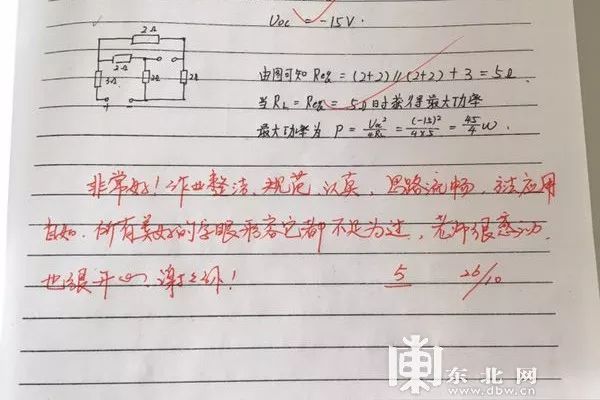 Uoc = -15V.
2Ω
2Ω
3Ω 2Ω 2Ω
由图可知 Req = (2+2)//(2+2)+3 = 5Ω
当 RL = Req = 5Ω时获得最大功率
最大功率为 P = Uoc²/4RL = (-15)²/4×5 = 45/4 W.
非常好!作业整洁、规范、认真,思路流畅,方法应用
自如.所有美好的字眼形容它都不足为过,老师很感动,
也很开心.谢
5 26/10
东北网
www.dbw.cn